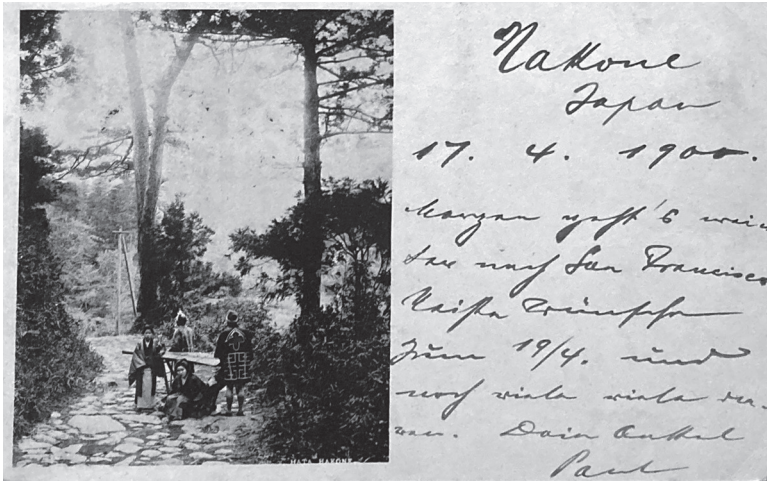 Hakone
Japan
17. 4. 1900.
Morgen geht's wei-
ter nach San Francisco
Wünsche
zum 19/4. und
noch viele viele
Dein Onkel
Paul
HATA HAKONE